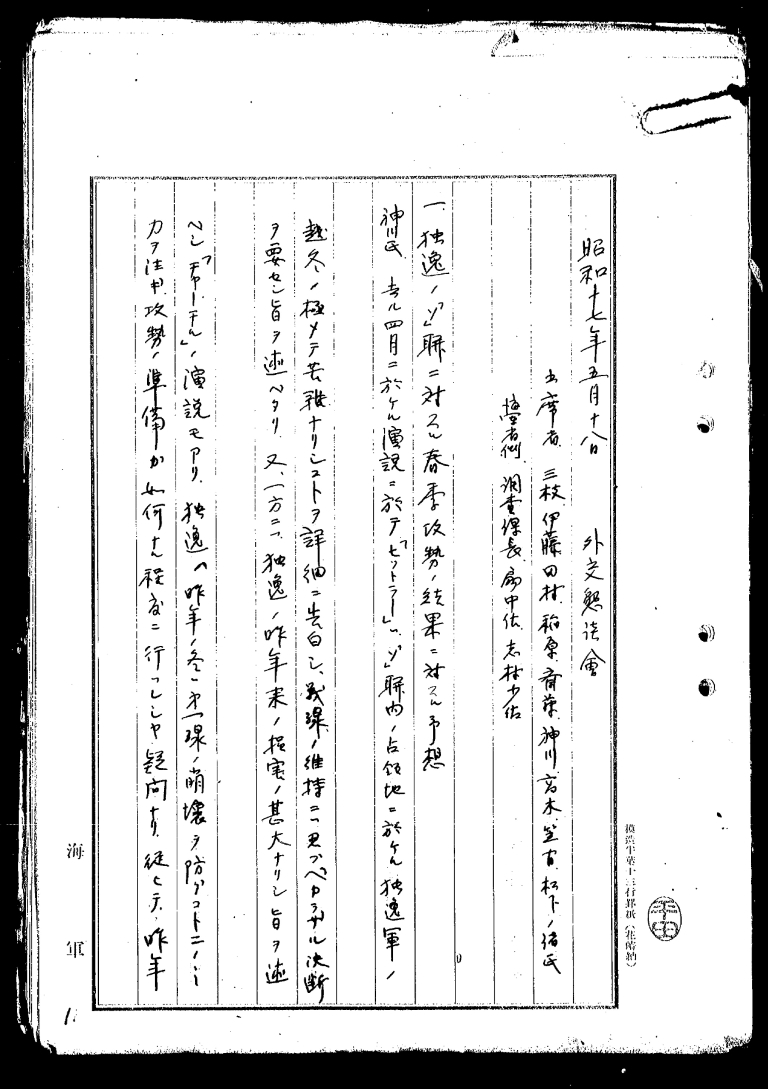 昭和十七年五月十八日　外交懇談會
出席者　三枝、伊藤、田村、稲原、斎藤、神川、高木、笠間、松下ノ諸氏
調査課長、扇中佐、志村少佐
一、独逸ノ「ソ」聯ニ対スル春季攻勢ノ結果ニ対スル予想
神川氏　去ル四月ニ於ケル演説ニ於テ「ヒットラー」ハ、「ソ」聯内ノ占領地ニ於ケル独逸軍ノ
越冬ノ極メテ苦難ナリシコトヲ詳細ニ告白シ、戦線ノ維持ニハ思フベカラザル決断
ヲ要セシ旨ヲ述ベタリ、又、一方ニハ、独逸ノ昨年来ノ損害ノ甚大ナリシ旨ヲ述
ベシ「チャーチル」ノ演説モアリ、独逸ハ昨年ノ冬ハ第一線ノ崩壊ヲ防グコトニノミ
力ヲ注ギ、攻勢ノ準備ガ如何ナル程度ニ行ハレシヤ疑問ナリ、従ヒテ、昨年
海軍